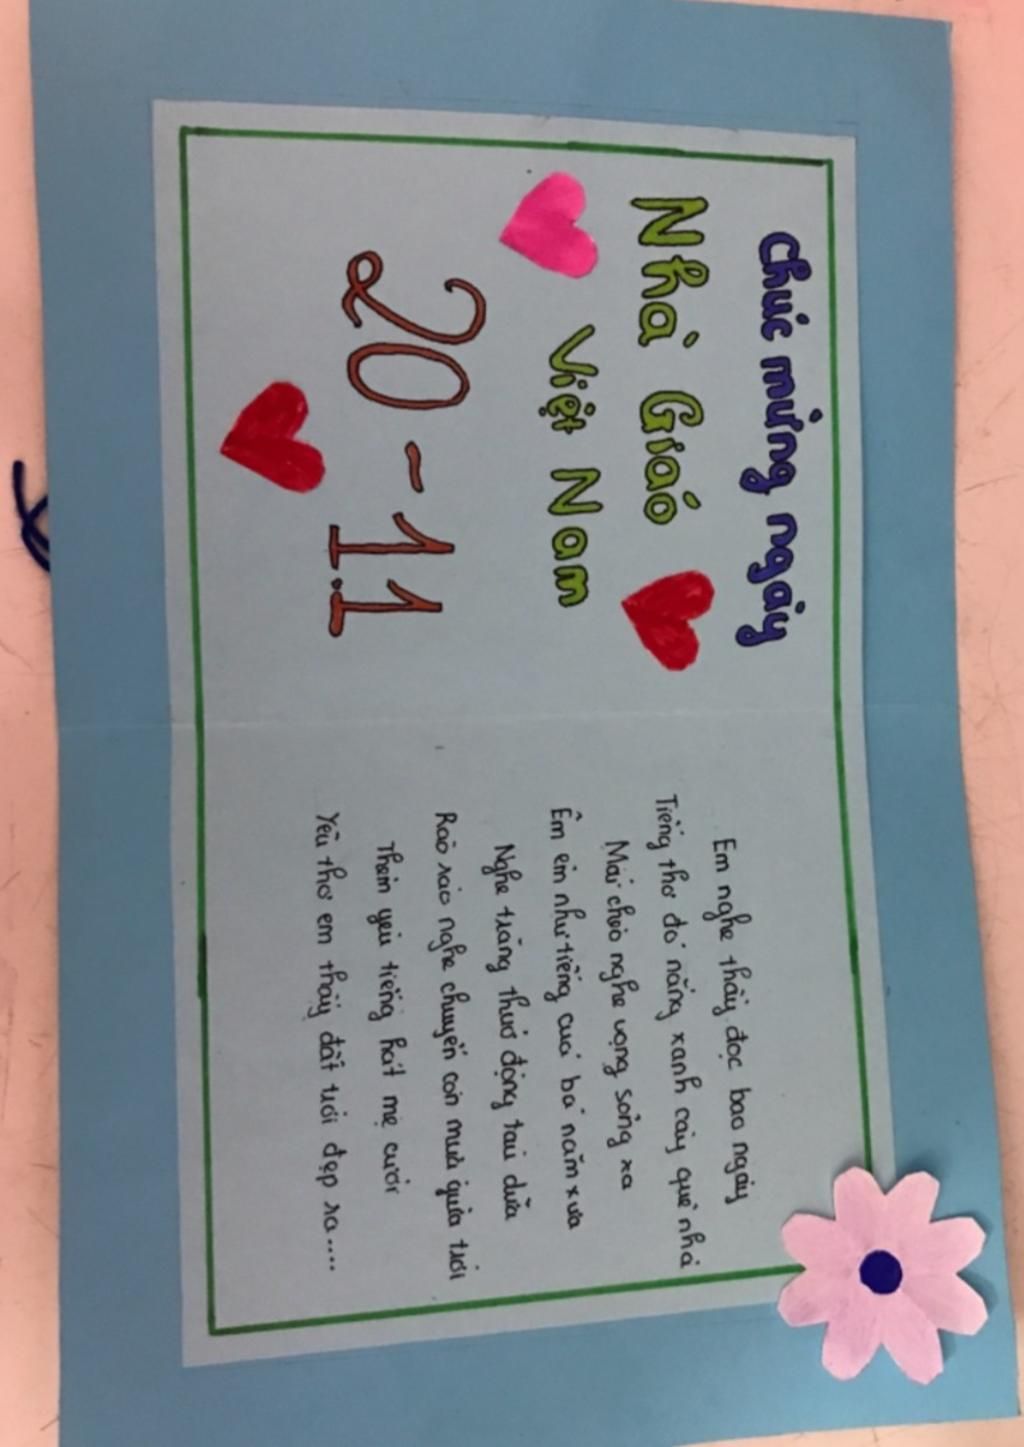 Chúc mừng ngày
Nhà Giáo
Việt Nam
20-11
Em nghe thầy đọc bao ngày
Tiếng thơ đỏ nắng xanh cây quê nhà
Mái chèo nghe vọng sông xa
Êm êm như tiếng cười bà năm xưa
Nghe trăng thuở động tàu dừa
Rào rào nghe chuyển cơn mưa giữa trời
Thêm yêu tiếng hát mẹ cười
Yêu thơ em thấy đất trời đẹp ra....